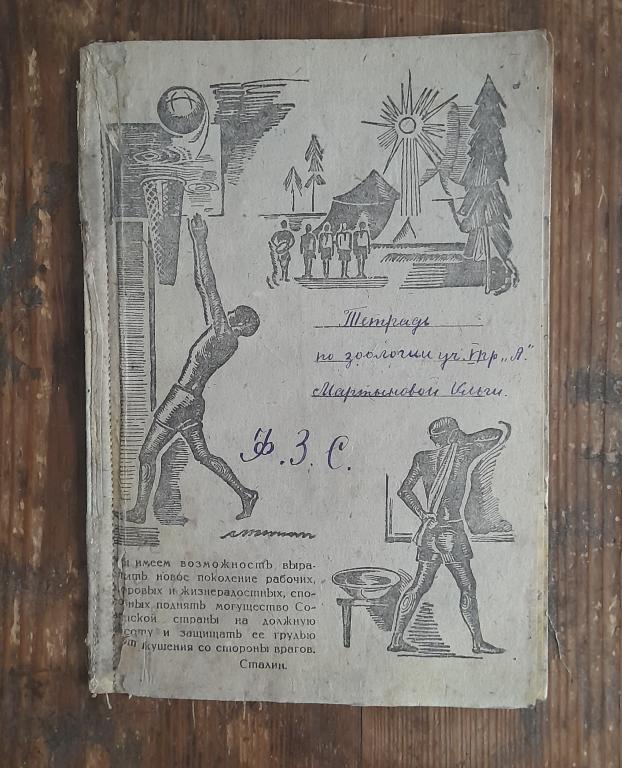 Тетрадь
по зоологии уч. V гр „А."
Мартыновой Ольги.
Ф. З. С.
имеем возможность выра-
тить новое поколение рабочих,
ровых и жизнерадостных, спо-
ных поднять могущество Со-
ской страны на должную
соту и защищать ее грудью
от кушения со стороны врагов.
Сталин.